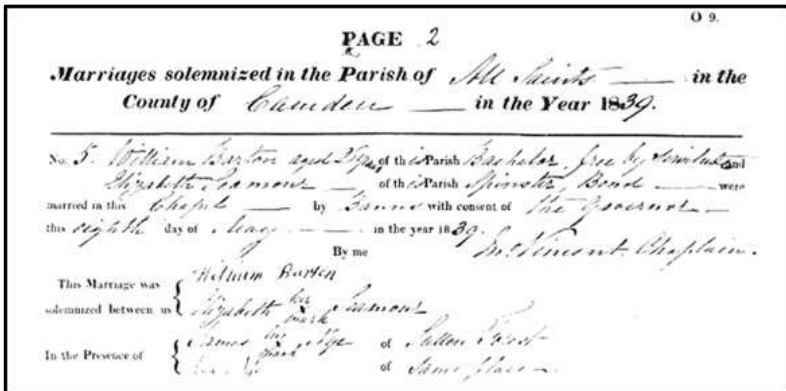 O 9.
PAGE 2
Marriages solemnized in the Parish of All Saints in the
County of Camden in the Year 1839.
No. 5. William Barton aged of this Parish Bachelor, free by servitude and
Elizabeth Seamour of this Parish Spinster, Bond were
married in this Chapel by Banns with consent of the Governor
this eighth day of May in the year 1839.
By me Vincent. Chaplain.
William Barton
This Marriage was
solemnized between us Elizabeth her mark Seamour
James his mark Nye of Sutton Forest
In the Presence of
of Same place